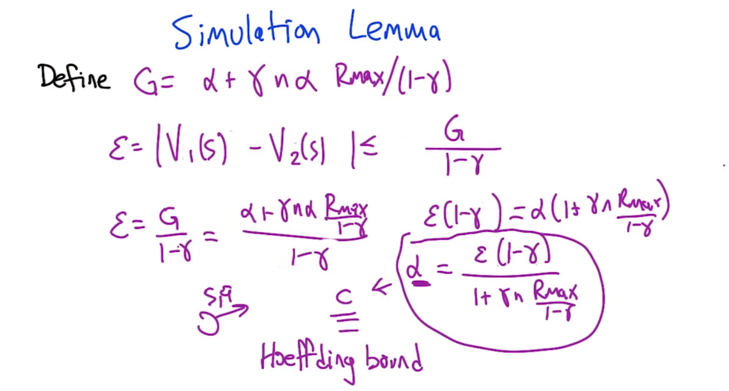 Simulation Lemma
Define G = α + γ n α Rmax/(1-γ)
ε = |V₁(s) - V₂(s)| ≤ G/(1-γ)
ε = G/(1-γ) = (α + γ n α Rmax/(1-γ))/(1-γ)
ε(1-γ) = α(1 + γ n Rmax/(1-γ))
α = ε(1-γ)/(1 + γ n Rmax/(1-γ))
s,a
C
Hoeffding bound